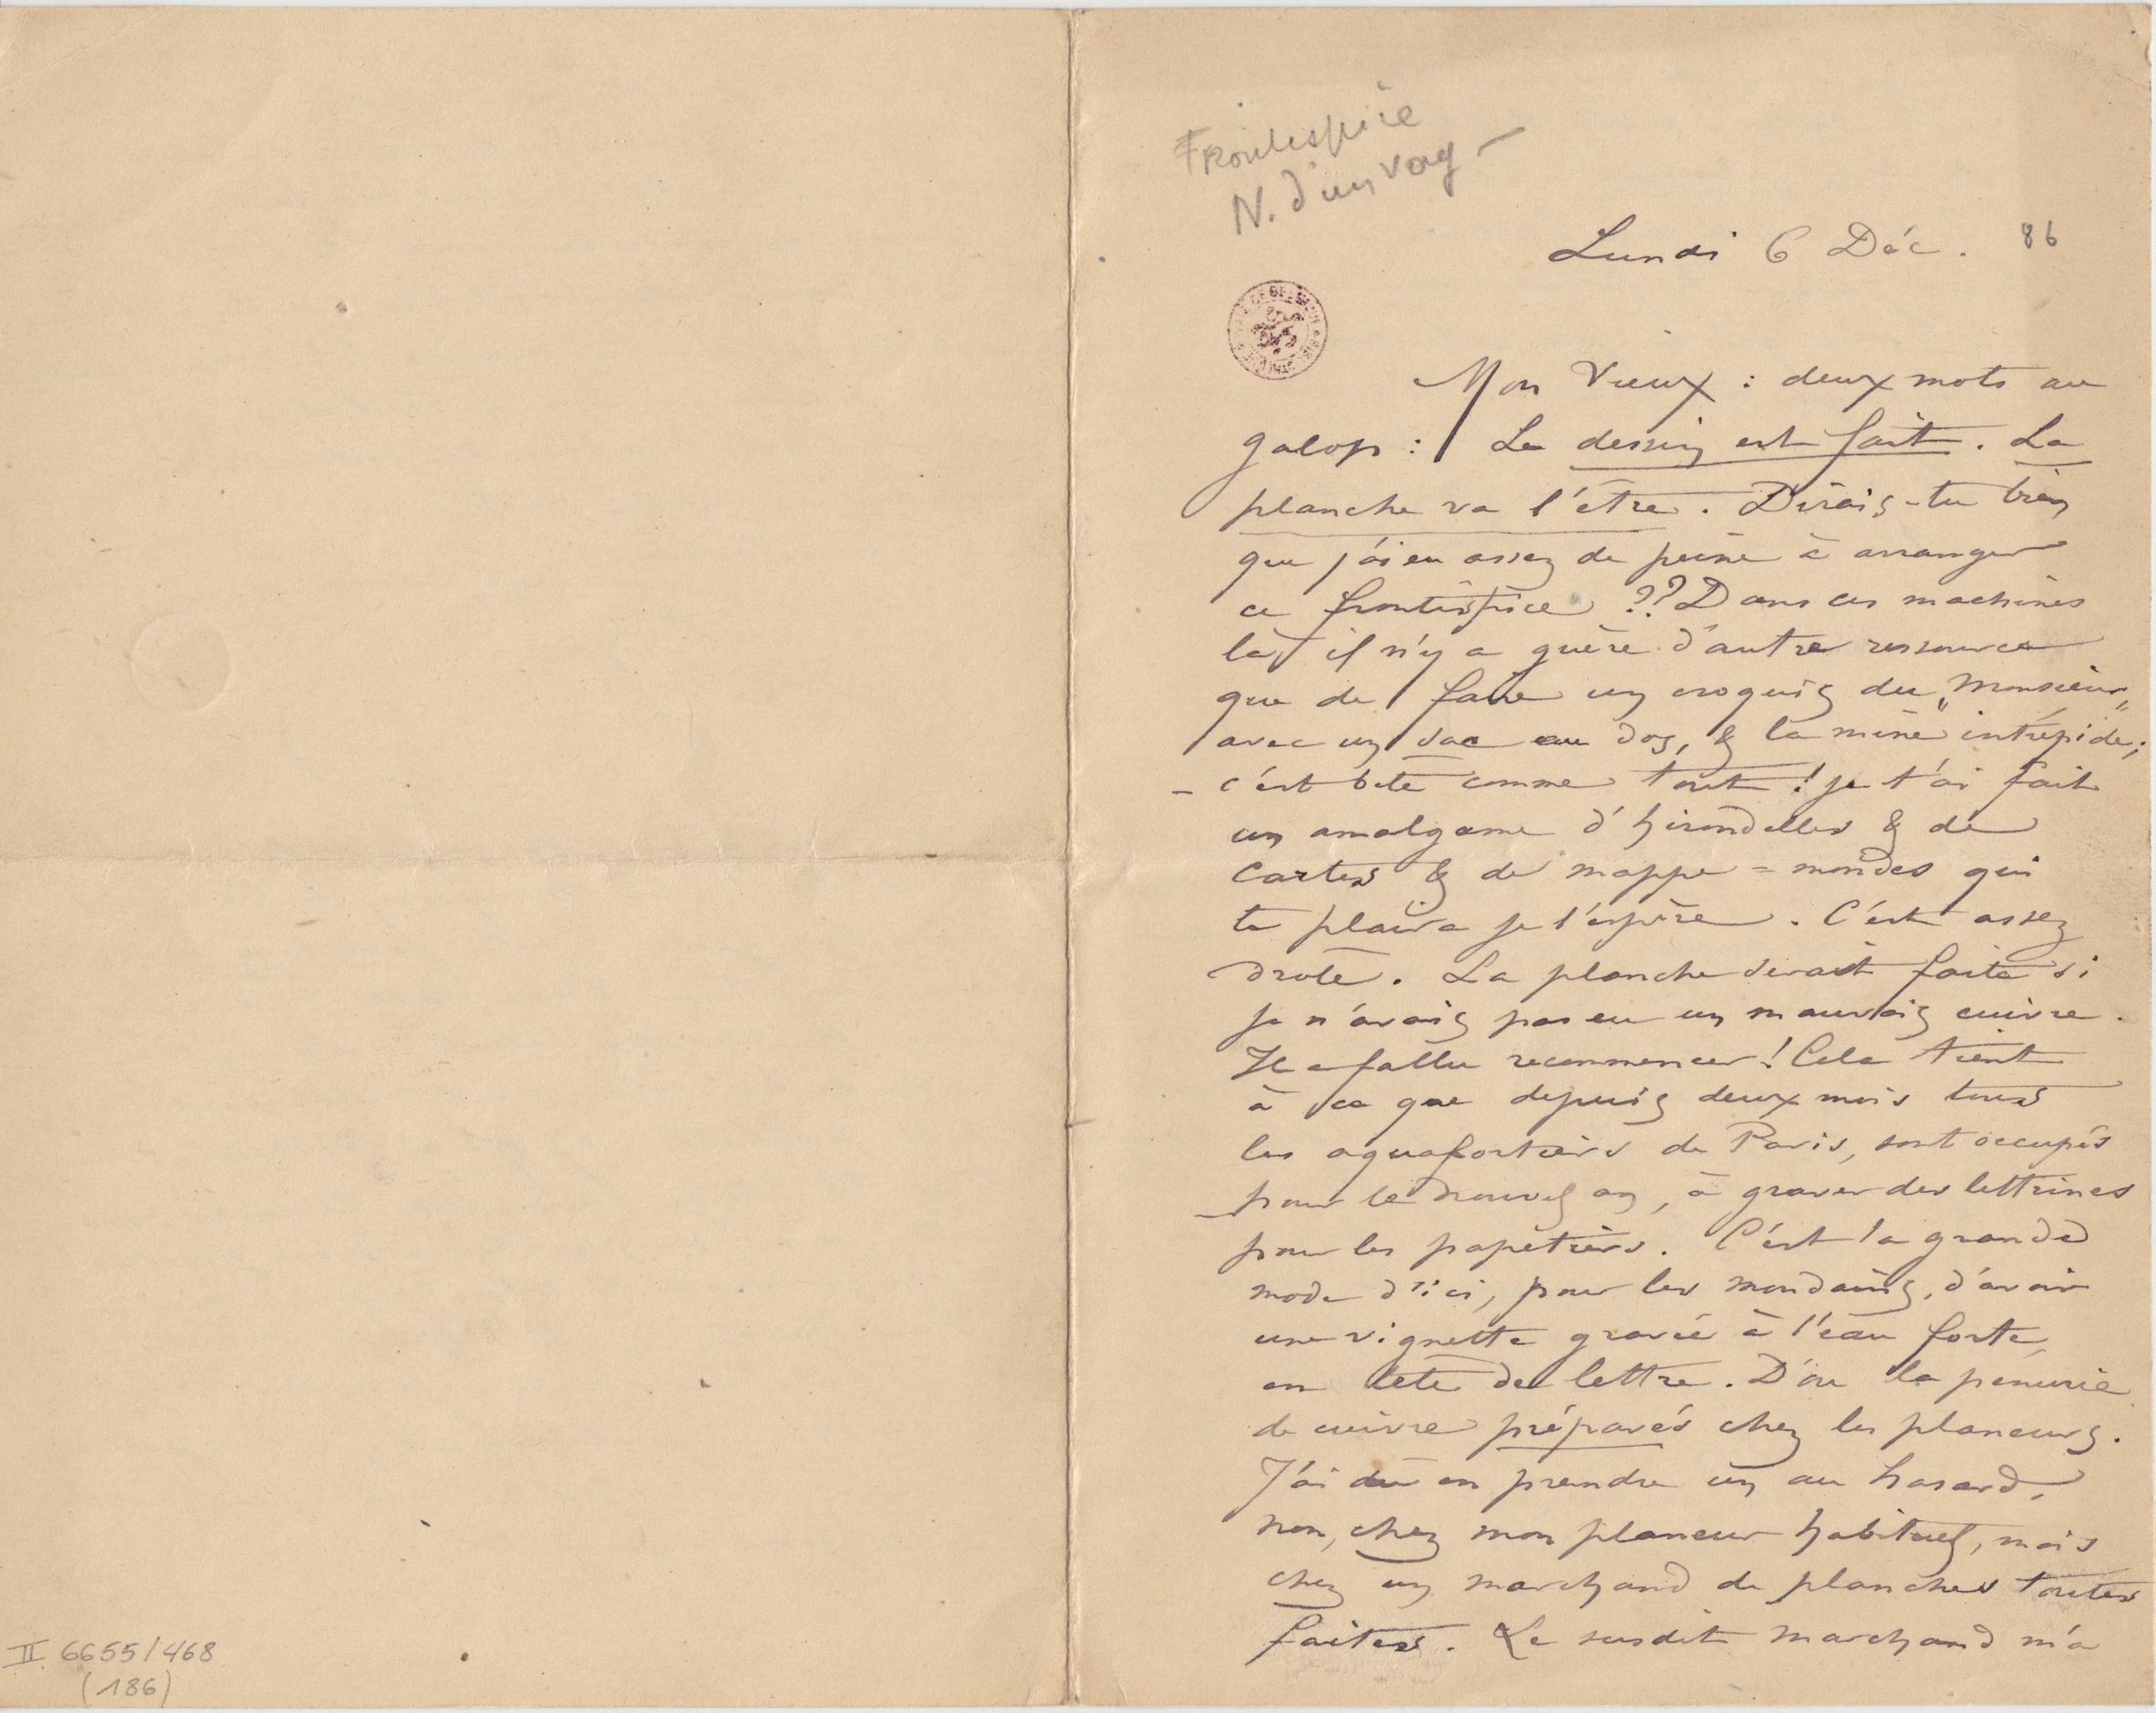 Frontispice
N. d'un voy –
Lundi 6 Déc. 86
Mon Vieux : deux mots au
galop : Le dessin est fait. La
planche va l'être. Dirais-tu bien
que j'ai eu assez de peine à arranger
ce frontispice ?? Dans ces machines
là il n'y a guère d'autre ressource
que de faire un croquis du „Monsieur„
avec un sac au dos, & la mine intrépide;
– c'est bête comme tout ! je t'ai fait
un amalgame d'hirondelles & de
cartes & de mappe = mondes qui
te plaira je l'espère. C'est assez
drôle. La planche serait faite si
je n'avais pas eu un mauvais cuivre.
Il a fallu recommencer ! Cela tient
à ce que depuis deux mois tous
les aquafortiers de Paris, sont occupés
pour le nouvel an, à graver des lettrines
pour les papetiers. C'est la grande
mode d'ici, pour les mondains, d'avoir
une vignette gravée à l'eau forte
en tête de lettre. D'où la penurie
de cuivre préparés chez les planeurs.
J'ai dû en prendre un au hasard,
non, chez mon planeur habituel, mais
chez un marchand de planches toutes
faites. Le susdit marchand m'a
II 6655/468
(186)